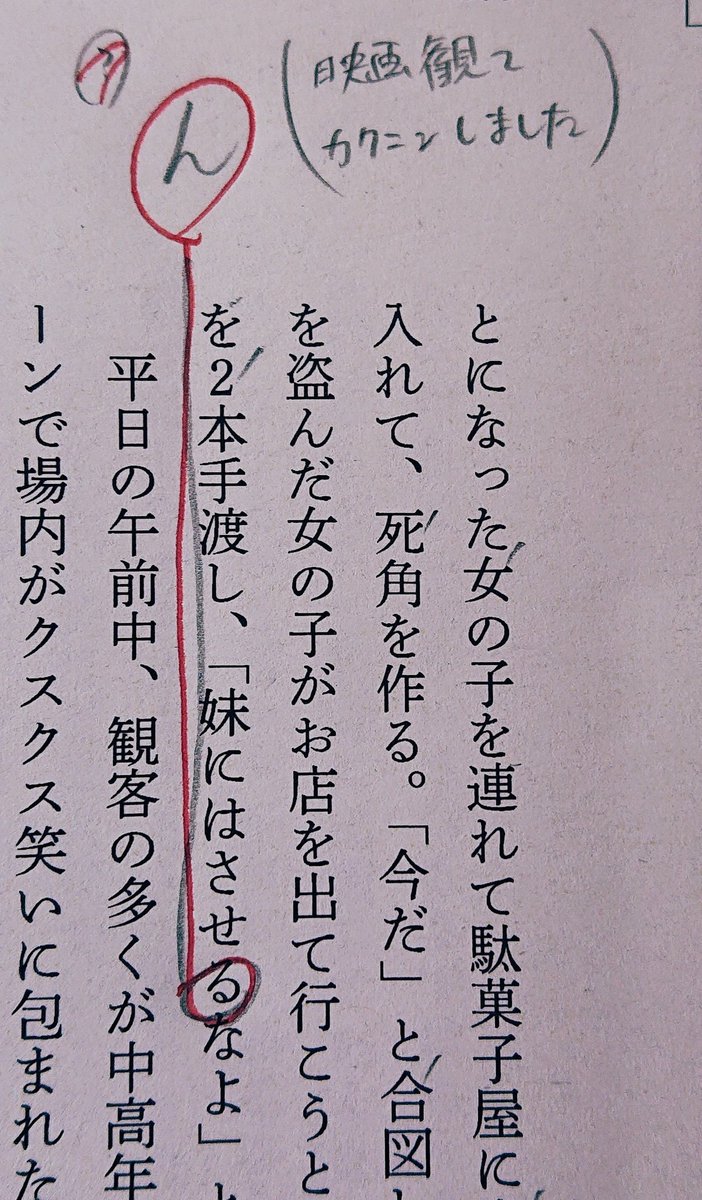 ん
(映画観て
カクニンしました)
とになった女の子を連れて駄菓子屋に
入れて、死角を作る。「今だ」と合図
を盗んだ女の子がお店を出て行こうと
を2本手渡し、「妹にはさせるなよ」と
平日の午前中、観客の多くが中高年
ーンで場内がクスクス笑いに包まれた